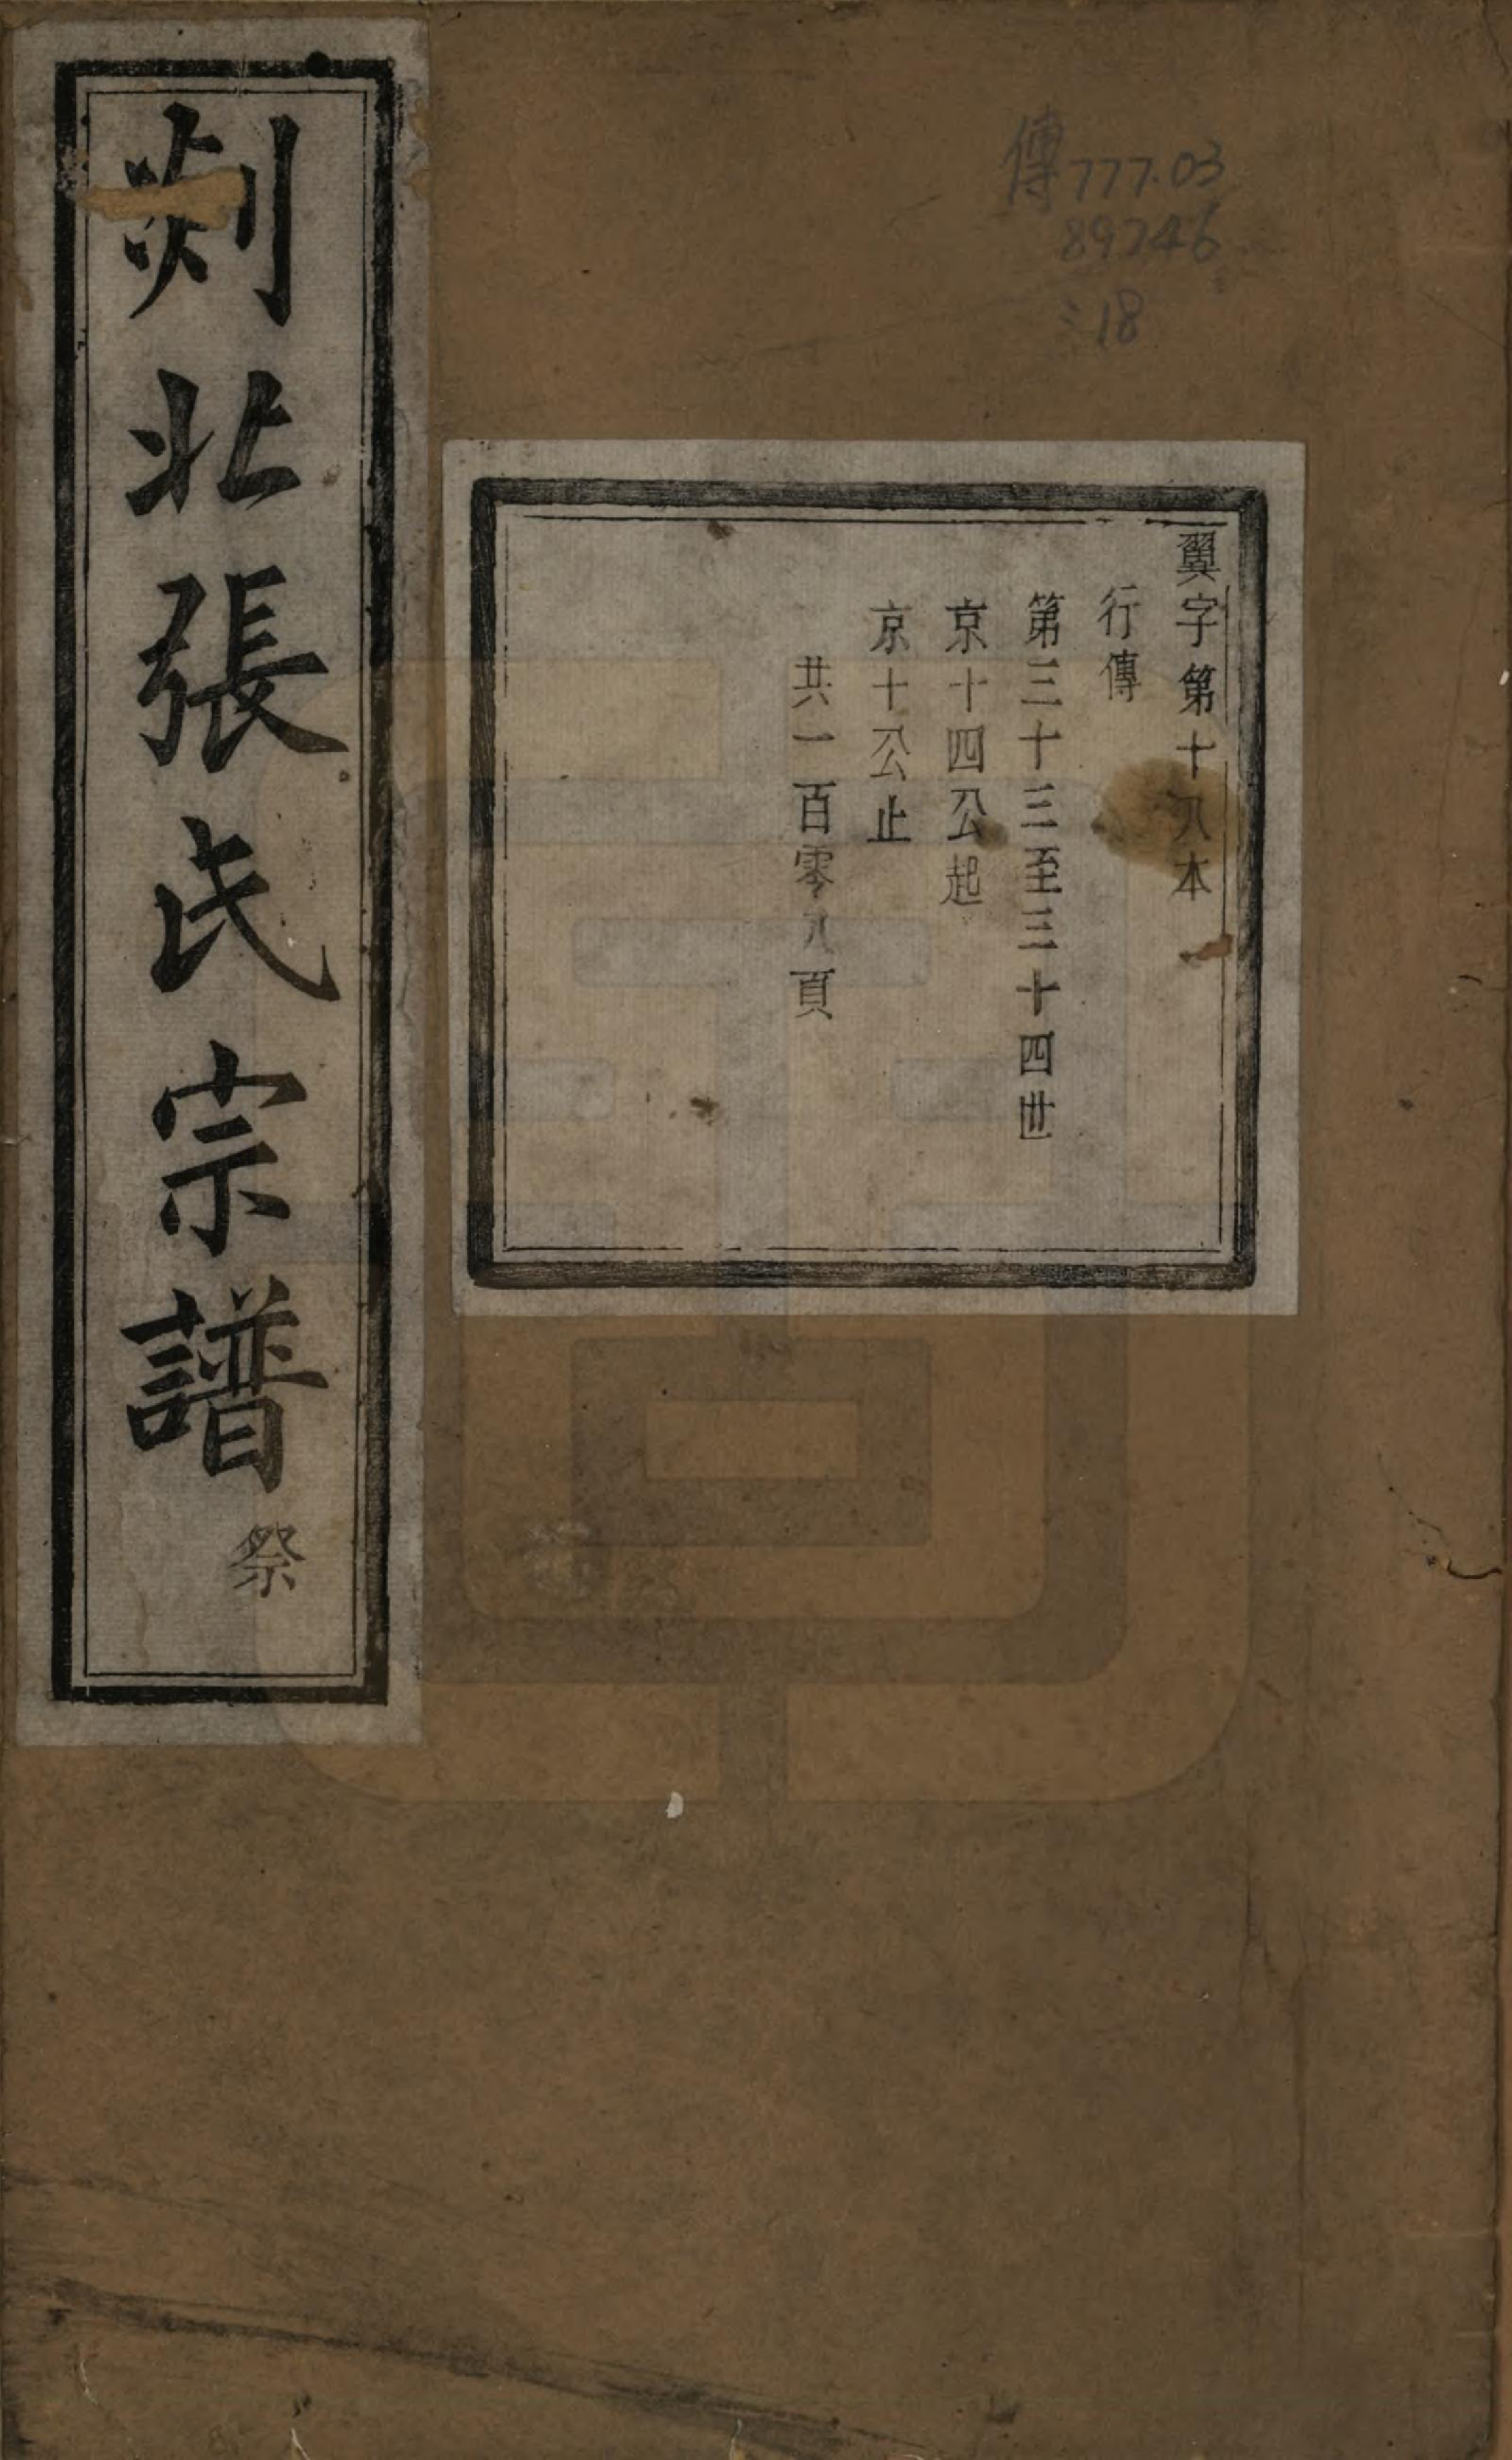 傳777.03
89746
:18
翼字第十八本
行傳
第三十三至三十四世
京十四公起
京十公止
共一百零八頁
剡北張氏宗譜
祭